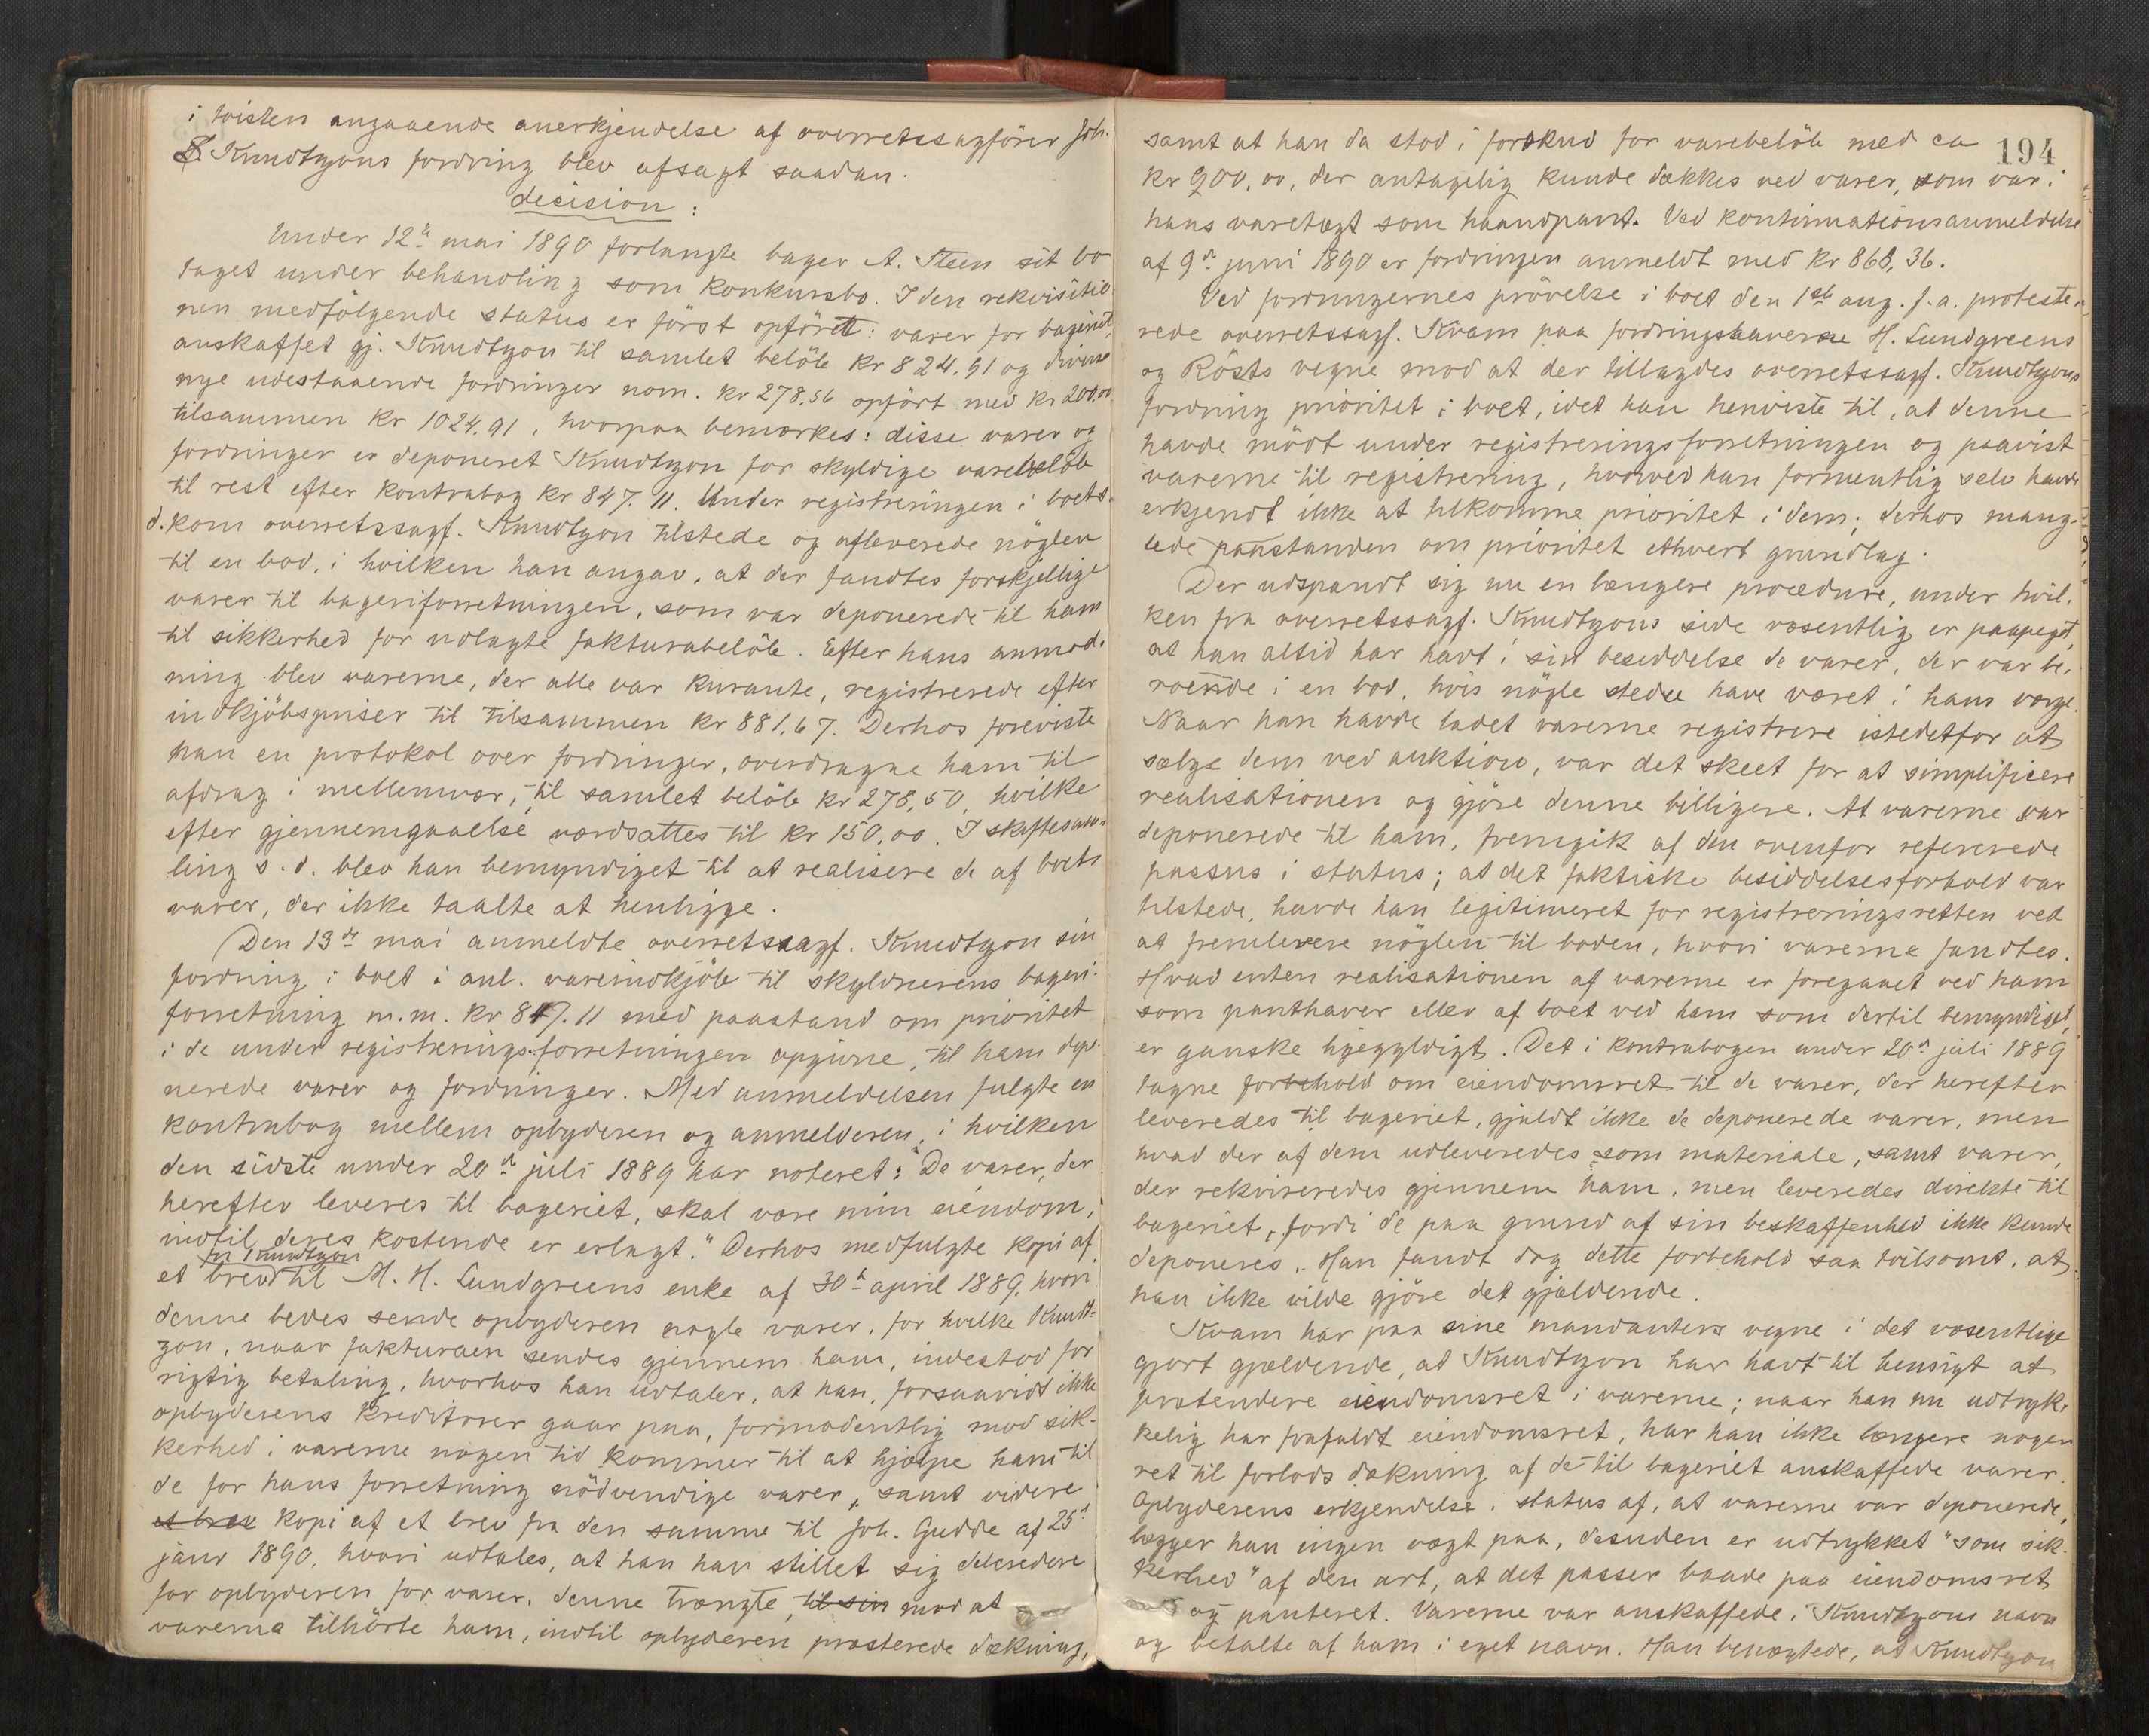 i tvisten angaaende anerkjendelse af overretssagförer Joh.
S. Knudtzons fordring blev afsagt saadan.
decision:
Under 12te mai 1890 forlangte bager A. Steen sit bo
taget under behandling som konkursbo. I den rekvisitio-
nen medfölgende status er först opfört: varer for bageriet,
anskaffet gj. Knudtzon til samlet belöb kr 824.91 og diverse
nye udestaaende fordringer nom. kr 278,56 opfört med kr 200,00
tilsammen kr 1024,91, hvorpaa bemærkes: disse varer og
fordringer er deponeret Knudtzon for skyldige varebelöb
til rest efter kontrabog kr 847.11. Under registreringen i boet s.
d. kom overretssagf. Knudtzon tilstede og afleverede nöglen
til en bod, i hvilken han angav, at der fandtes forskjellige
varer til bageriforretningen, som var deponerede til ham
til sikkerhed for udlagte fakturabelöb. Efter hans anmod-
ning blev varerne, der alle var kurante, registrerede efter
indkjöbspriser til tilsammen kr 881,67. Derhos foreviste
han en protokol over fordringer, overdragne ham til
afdrag i mellemvær, til samlet belöb kr 278,50, hvilke
efter gjennemgaaelse værdsattes til kr 150,00. I skiftesam-
ling s.d. blev han bemyndiget til at realisere de af boets
varer, der ikke taalte at henligge.
Den 13de mai anmeldte overretssagf. Knudtzon sin
fordring i boet i anl. vareindkjöb til skyldnerens bageri-
forretning m.m. kr 847.11 med paastand om prioritet
i de under registreringsforretningen opgivne, til ham depo-
nerede varer og fordringer. Med anmeldelsen fulgte en
kontrabog mellem opbyderen og anmelderen, i hvilken
den sidste under 20de juli 1889 har noteret: "De varer, der
herefter leveres til bageriet, skal være min eiendom,
indtil deres kostende er erlagt." Derhos medfulgte kopi af
fra Knudtzon
et brev til M. H. Lundgreens enke af 30te april 1889, hvori
denne bedes sende opbyderen nogle varer, for hvilke Knudt-
zon, naar fakturaen sendes gjennem ham, indestod for
rigtig betaling, hvorhos han udtaler, at han, forsaavidt ikke
opbyderens kreditorer gaar paa, formodentlig mod sik-
kerhed i varerne nogen tid kommer til at hjælpe ham til
de for hans forretning nödvendige varer, samt videre
et brev kopi af et brev fra den samme til Joh. Gudde af 25de
janr 1890, hvori udtales, at han har stillet sig delcredere
for opbyderen for varer, denne trængte, til sin mod at
varerne tilhörte ham, indtil opbyderen præsterede dækning,
194
samt at han da stod i forskud for varebelöb med ca
kr 900,00, der antagelig kunde dækkes ved varer, som var i
hans varetægt som haandpant. Ved kontinuationsanmeldelse
af 9de juni 1890 er fordringen anmeldt med kr 868,36.
Ved fordringernes prövelse i boet den 1ste aug. f.a. proteste-
rede overretssagf. Kvam paa fordringshaverne H. Lundgreens
og Rösts vegne mod at der tillagdes overretssagf. Knudtzons
fordring prioritet i boet, idet han henviste til, at denne
havde mödt under registreringsforretningen og paavist
varerne til registrering, hvorved han formentlig selv havde
erkjendt ikke at tilkomme prioritet i dem; derhos mang-
lede paastanden om prioritet ethvert grundlag.
Der udspandt sig nu en længere procedure, under hvil-
ken fra overretssagf. Knudtzons side væsentlig er paapeget,
at han altid har havt i sin besiddelse de varer, der var be-
roende i en bod, hvis nögle stedse have været i hans værge.
Naar han havde ladet varerne registrere istedetfor at
sælge dem ved auktion, var det skeet for at simplificere
realisationen og gjöre denne billigere. At varerne var
deponerede til ham, fremgik af den ovenfor refererede
passus i status; at det faktiske besiddelsesforhold var
tilstede, havde han legitimeret for registreringsretten ved
at fremlevere nöglen til boden, hvori varerne fandtes.
Hvad enten realisationen af varerne er foregaaet ved ham
som panthaver eller af boet ved ham som dertil bemyndiget,
er ganske ligegyldigt. Det i kontrabogen under 20de juli 1889
tagne forbehold om eiendomsret til de varer, der herefter
leveredes til bageriet, gjaldt ikke de deponerede varer, men
hvad der af dem udleveredes som materiale, samt varer,
der rekvireredes gjennem ham, men leveredes direkte til
bageriet, fordi de paa grund af sin beskaffenhed ikke kunde
deponeres. Han fandt dog dette forbehold saa tvilsomt, at
han ikke vilde gjöre det gjældende.
Kvam har paa sine mandanters vegne i det væsentlige
gjort gjældende, at Knudtzon har havt til hensigt at
prætendere eiendomsret i varerne; naar han nu udtryk-
kelig har frafaldt eiendomsret, har han ikke længere nogen
ret til forlods dækning af de til bageriet anskaffede varer.
Opbyderens erkjendelse i status af, at varerne var deponerede,
lægger han ingen vægt paa, desuden er udtrykket "som sik-
kerhed" af den art, at det passer baade paa eiendomsret
og panteret. Varerne var anskaffede i Knudtzons navn
og betalte af ham i eget navn. Han benægtede, at Knudtzon